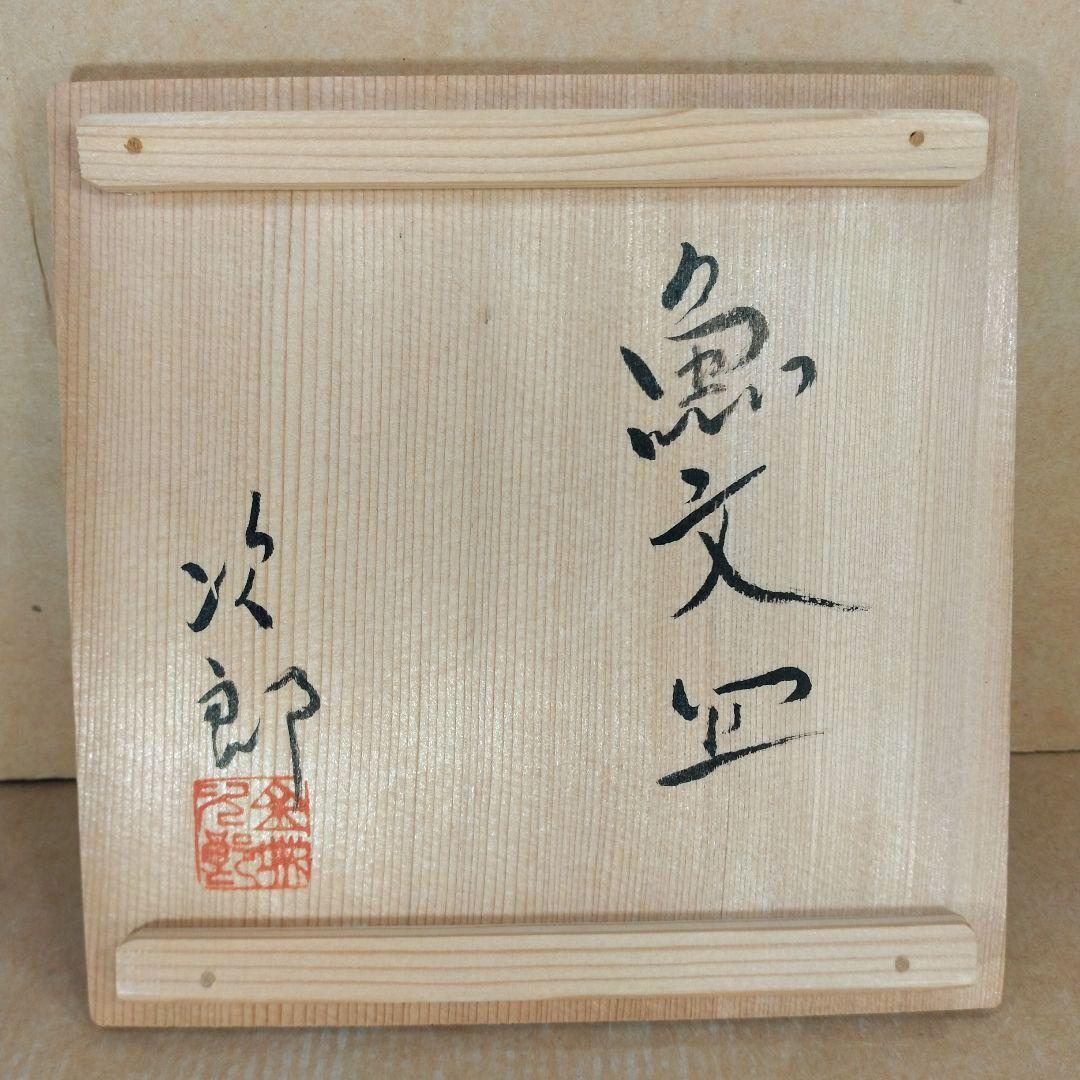 魚文皿
次郎